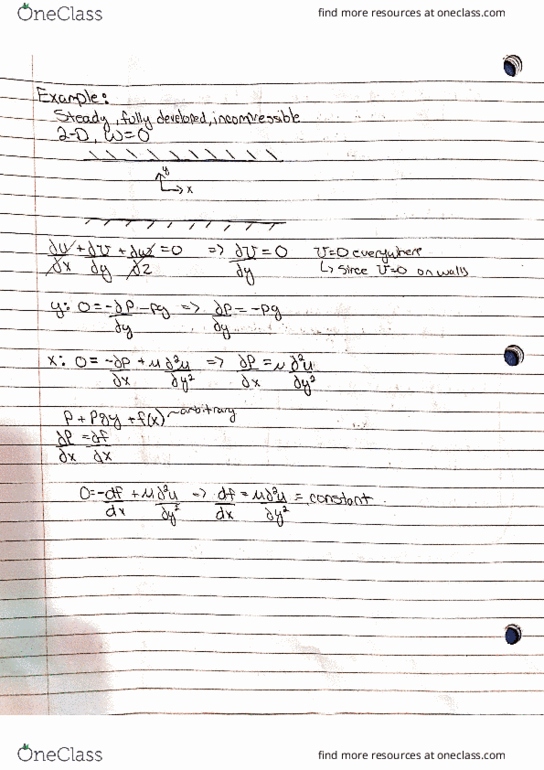 OneClass find more resources at oneclass.com
Example:
Steady, fully developed, incompressible
2-D, ω=0
y
x
∂u/∂x + ∂v/∂y + ∂w/∂z = 0 => ∂v/∂y = 0 v=0 everywhere
↳ since v=0 on walls
y: 0 = -∂p/∂y - ρg => ∂p/∂y = -ρg
x: 0 = -∂p/∂x + μ ∂²u/∂y² => ∂p/∂x = μ ∂²u/∂y²
P + ρgy + f(x) ~arbitrary
∂p/∂x = ∂f/∂x
0 = -df/dx + μ ∂²u/∂y² => df/dx = μ ∂²u/∂y² = constant
OneClass find more resources at oneclass.com